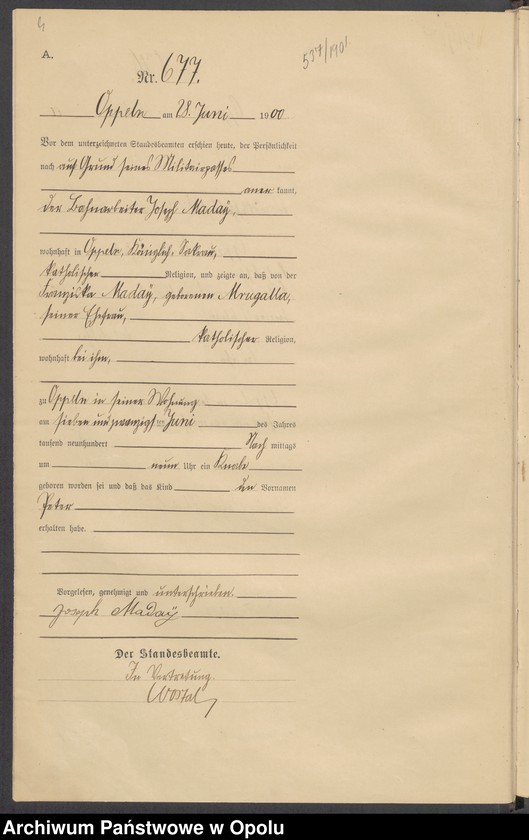 4
A.
537/1901
Nr. 677.
Oppeln am 28. Juni 1900
Vor dem unterzeichneten Standesbeamten erschien heute, der Persönlichkeit
nach auf Grund seines Militairpasses
aner kannt,
der Bahnarbeiter Joseph Maday,
wohnhaft in Oppeln, Königlich,
katholischer Religion, und zeigte an, daß von der
Franziska Maday, geborenen Mrugalla,
seiner Ehefrau,
katholischer Religion,
wohnhaft bei ihm,
zu Oppeln in seiner Wohnung
am sieben und zwanzigsten Juni des Jahres
tausend neunhundert Nach mittags
um neun Uhr ein Knabe
geboren worden sei und daß das Kind den Vornamen
Peter
erhalten habe.
Vorgelesen, genehmigt und unterschrieben
Joseph Maday
Der Standesbeamte.
In Vertretung.
Wostal
Archiwum Państwowe w Opolu